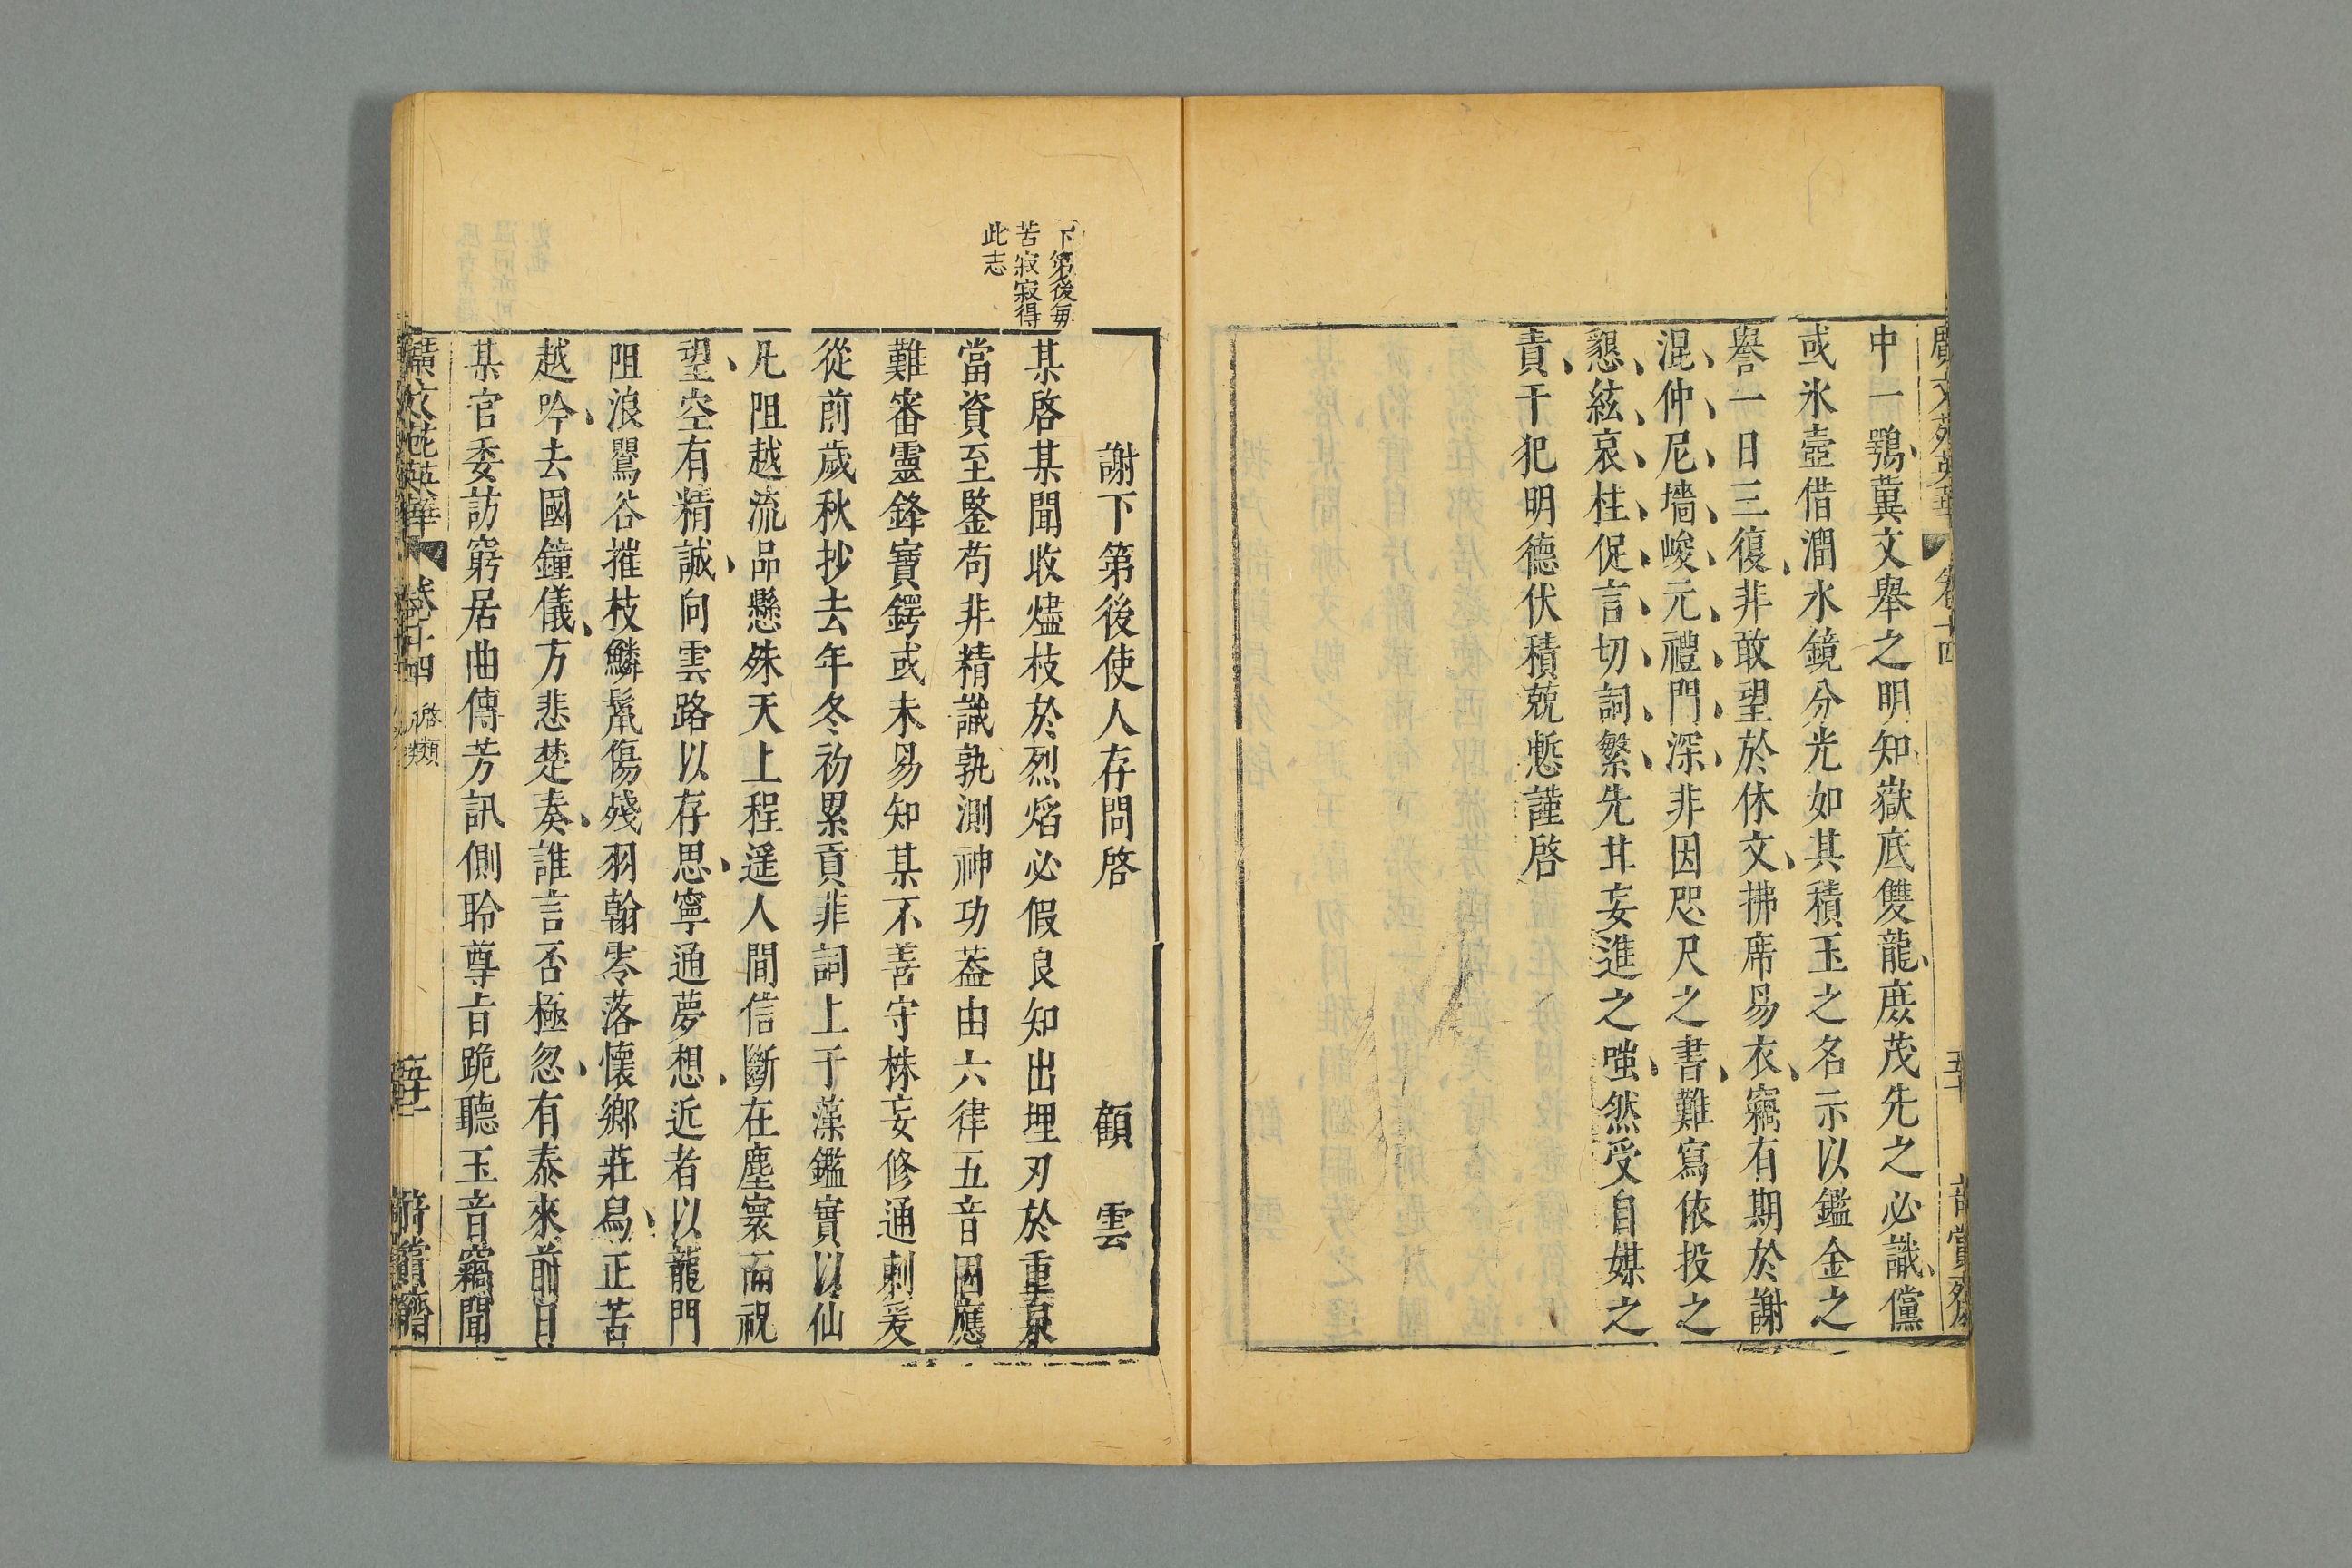 廣文苑英華 卷十四 五十 莭賞齋
中一鶚冀文舉之明知嶽底雙龍庻茂先之必識儻
或氷壺借潤水鏡分光如其積玉之名示以鑑金之
譽一日三復非敢望於休文拂席易衣竊有期於謝
混仲尼墻峻元禮門深非因咫尺之書難寫依投之
懇絃哀柱促言切詞繁先其妄進之嗤然受自媒之
責干犯明德伏積兢慙謹啓
下第後每
苦寂寂得
此志
謝下第後使人存問啓 顧雲
某啓某聞收燼枝於烈焰必假良知出埋刃於重泉
當資至鑒苟非精識孰測神功葢由六律五音因應
難審靈鋒寶鍔或未易知某不善守株妄修通刺爰
從前歲秋抄去年冬初累貢菲詞上干藻鑑實以仙
凡阻越流品懸殊天上程遥人間信斷在塵寰而祝
望空有精誠向雲路以存思寧通夢想近者以龍門
阻浪鸎谷摧枝鱗鬛傷殘羽翰零落懷鄉莊舄正苦
越吟去國鐘儀方悲楚奏誰言否極忽有泰來前日
某官委訪窮居曲傳芳訊側聆尊旨跪聽玉音竊聞
廣文苑英華 卷十四 啓類 五十一